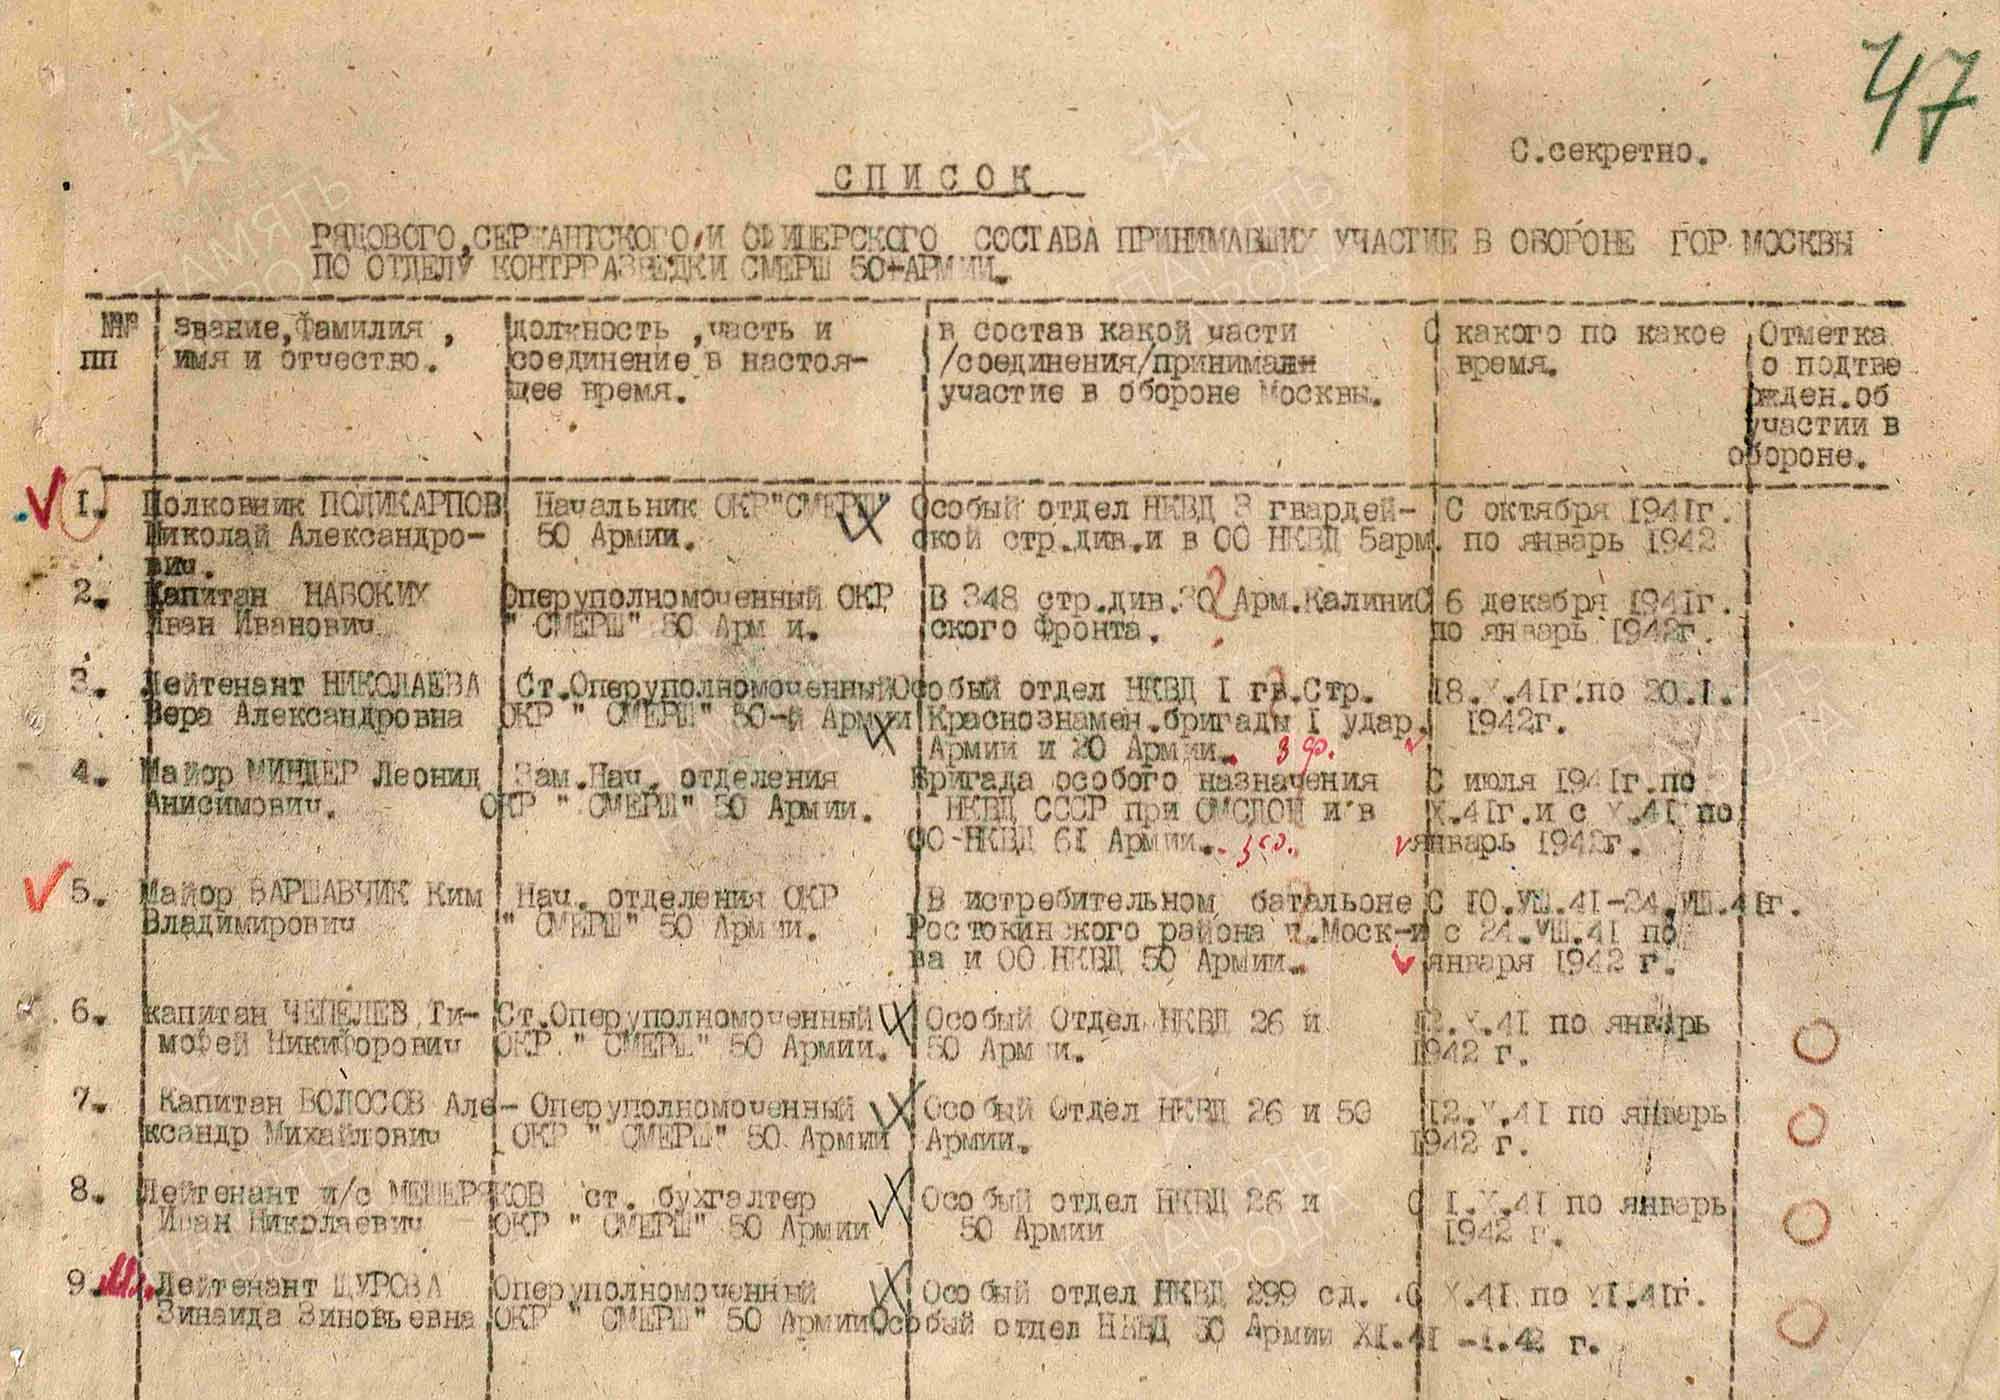 47
С.секретно.
СПИСОК
РЯДОВОГО,СЕРЖАНТСКОГО,И ОФИЦЕРСКОГО СОСТАВА ПРИНИМАВШИХ УЧАСТИЕ В ОБОРОНЕ ГОР.МОСКВЫ
ПО ОТДЕЛУ КОНТРРАЗВЕДКИ СМЕРШ 50-АРМИИ.
№№
пп
Звание,Фамилия ,
имя и отчество.
должность ,часть и
соединение в настоя-
щее время.
в состав какой части
/соединения/принимали
участие в обороне Москвы.
С какого по какое
время.
Отметка
о подтве
ржден.об
участии в
обороне.
1.
Полковник ПОЛИКАРПОВ
Николай Александро-
вич.
Начальник ОКР"СМЕРШ"
50 Армии.
Особый отдел НКВД 3 гвардей-
ской стр.див.и в ОО НКВД 5арм.
С октября 1941г.
по январь 1942
2.
Капитан НАВОКИХ
Иван Иванович
Оперуполномоченный ОКР
" СМЕРШ" 50 Арм и.
В 348 стр.див.30 Арм.Калини
ского Фронта.
С 6 декабря 1941г.
по январь 1942г.
3.
Лейтенант НИКОЛАЕВА
Вера Александровна
Ст.Оперуполномоченный
ОКР " СМЕРШ" 50-й Армии
Особый отдел НКВД I гв.Стр.
Краснознамен.бригады I удар.
Армии и 20 Армии. з ф.
18.X.41г.по 20.I.
1942г.
4.
Майор МИНДЕР Леонид
Анисимович.
Зам.Нач. отделения
ОКР " СМЕРШ" 50 Армии.
Бригада особого назначения
НКВД СССР при ОМСДОН и в
ОО-НКВД 61 Армии.
С июля 1941г.по
X.41г.и с X.41 по
январь 1942г.
5.
Майор ВАРШАВЧИК Ким
Владимирович
Нач. отделения ОКР
" СМЕРШ" 50 Арм ии.
В истребительном батальоне
Ростокинского района г.Моск-
ва и ОО НКВД 50 Армии.
С 10.УШ.41-24.УШ.41г.
и с 24.УШ.41 по
января 1942 г.
6.
капитан ЧЕПЕЛЕВ Ти-
мофей Никифорович
Ст.Оперуполномоченный
ОКР " СМЕРШ" 50 Армии.
Особый Отдел НКВД 26 и
50 Арм и.
12.X.41 по январь
1942 г.
7.
Капитан ВОЛОСОВ Але-
ксандр Михайлович
Оперуполномоченный
ОКР " СМЕРШ" 50 Армии
Особый Отдел НКВД 26 и 50
Армии.
12.X.41 по январь
1942 г.
8.
Лейтенант и/с МЕЩЕРЯКОВ
Иван Николаевич
ст. бухгалтер
ОКР " СМЕРШ" 50 Армии
Особый отдел НКВД 26 и
50 Армии
С I.X.41 по январь
1942 г.
9.
Лейтенант ЩУРОВА
Зинаида Зиновьевна
Оперуполномоченный
ОКР " СМЕРШ" 50 Армии
Особый отдел НКВД 299 сд.
Особый отдел НКВД 50 Армии
С X.41 по XI.41г.
XI.41 -I.42 г.
ПАМЯТЬ
НАРОДА